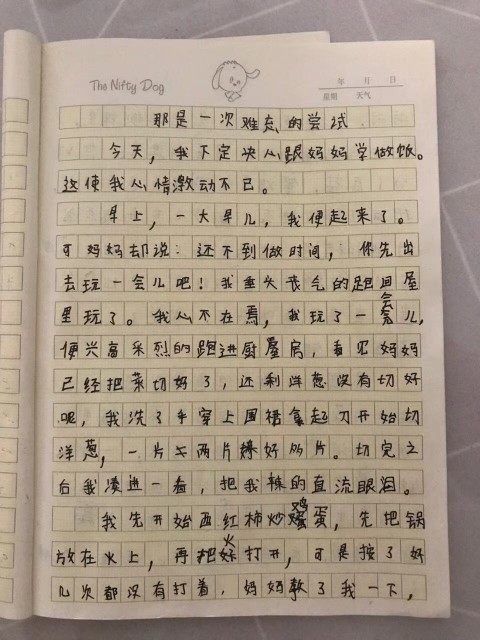 The Nifty Dog
年 月 日
星期 天气
那是一次难忘的尝试
今天，我下定决心跟妈妈学做饭。
这使我心情激动不已。
早上，一大早儿，我便起来了。
可妈妈却说：还不到做时间，你先出
去玩一会儿吧！我垂头丧气的跑回屋
里玩了。我心不在焉，我玩了一会儿，
便兴高采烈的跑进厨房，看见妈妈
已经把菜切好了，还剩洋葱没有切好
呢，我洗了手穿上围裙拿起刀开始切
洋葱，一片 两片 好几片。切完之
后我凑进一看，把我辣的直流眼泪。
我先开始西红柿炒鸡蛋，先把锅
放在火上，再把火打开，可是按了好
几次都没有打着，妈妈教了我一下，